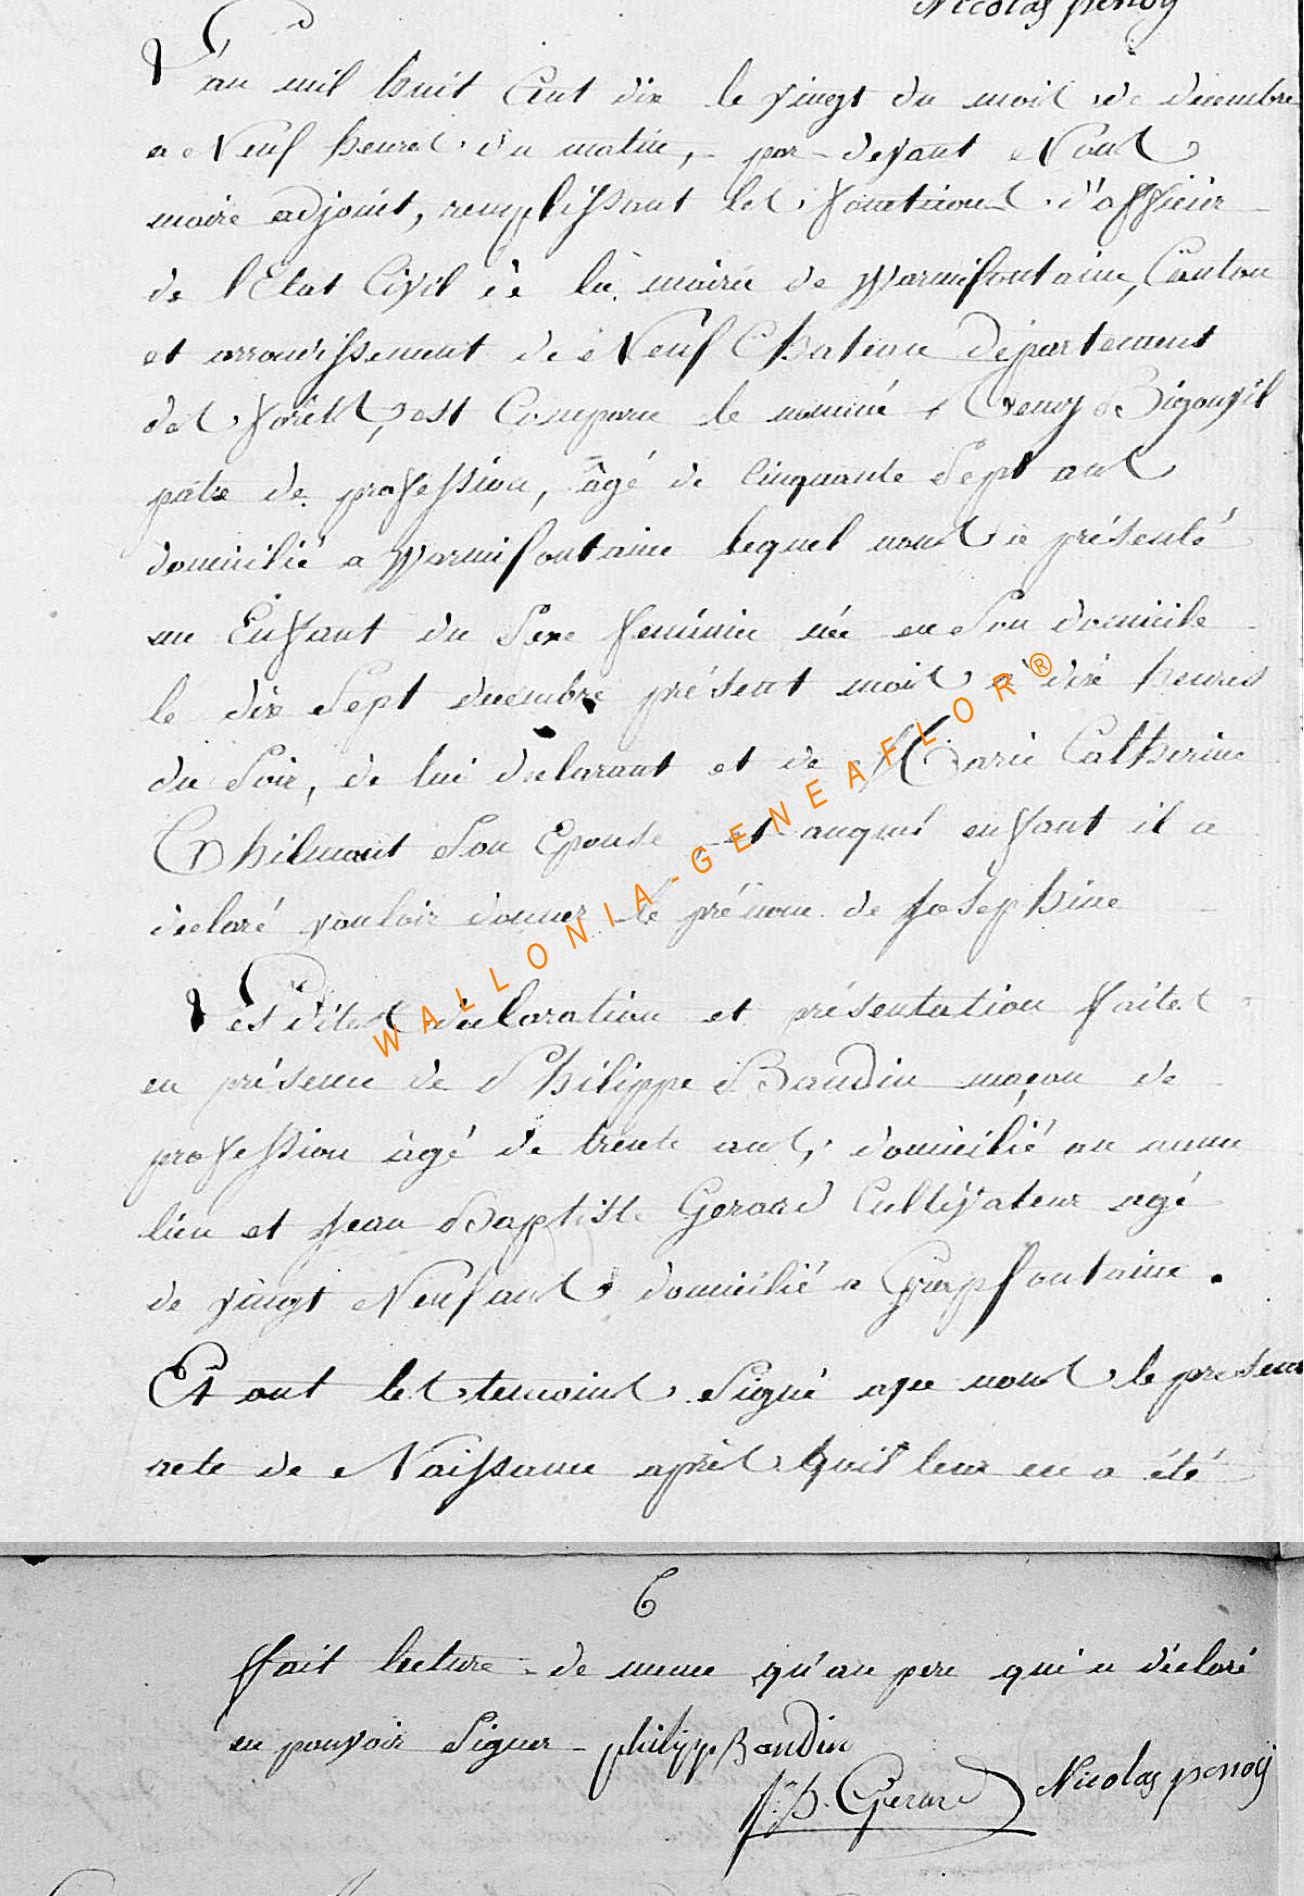 Nicolas penoy
L'an mil huit Cent dix le vingt du mois de decembre
a Neuf heures du matin, par-devant Nous
maire adjoint, remplissant les fonctions d'officier
de l'Etat Civil de la mairie de Warmifontaine, Canton
et arrondissement de Neuf Chateau departement
des forêts, est Comparu le nommé Bigonvil
patre de profession, âgé de Cinquante Sept ans
domicilié a Warmifontaine lequel nous a présenté
un Enfant du Sexe feminin née en Son domicile
le dix Sept decembre présent mois a dix heures
du Soir, de lui déclarant et de Marie Catherine
Thilmant Son Epouse et auquel enfant il a
declaré vouloir donner le prénom de Josephine
Les dites déclaration et présentation faites
en présence de Philippe Baudin maçon de
profession âgé de trente ans, domicilié au meme
lieu et Jean Baptiste Gerard Cultivateur agé
de vingt Neuf ans domicilié a Grapfontaine.
Et ont les temoins Signé avec nous le present
acte de Naissance après quil leur en a été
WALLONIA-GENEAFLOR®
6
fait lecture de meme qu'au pere qui a déclaré
ne pouvoir Signer - philipp Baudin
J:B. Gerard Nicolas penoy